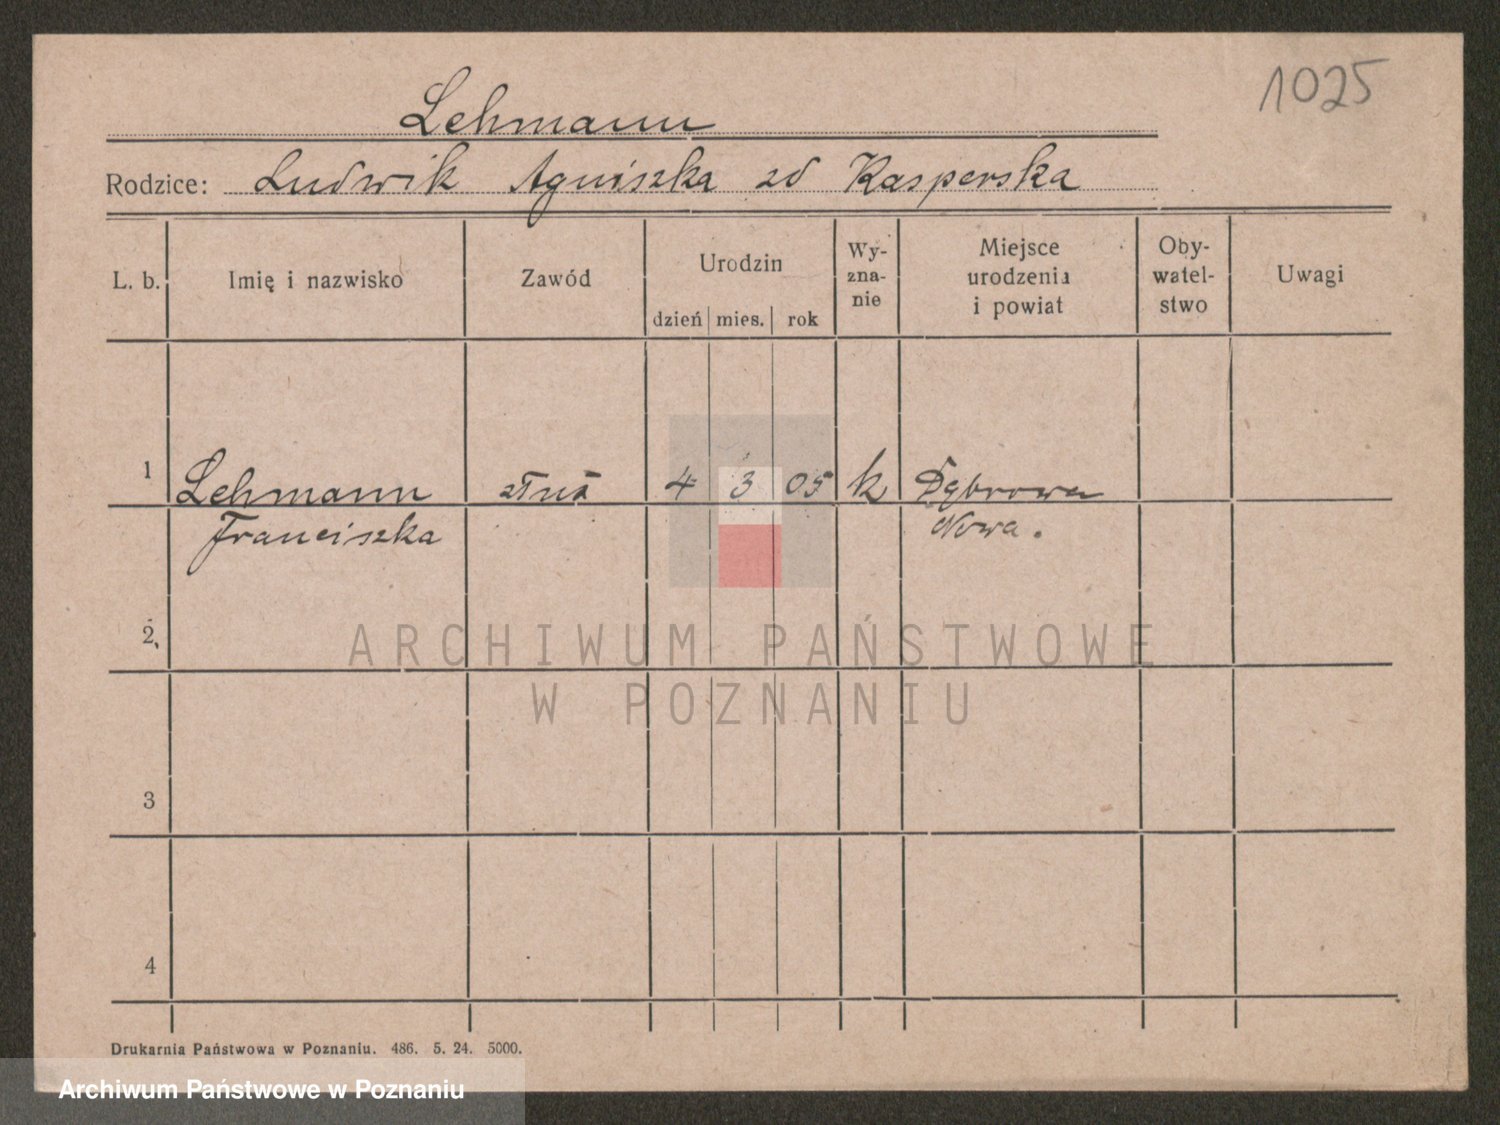 1025
Lehmann
Rodzice: Ludwik Agniszka zd Kasperska
L. b.
Imię i nazwisko
Zawód
Urodzin
dzień mies. rok
Wy-
zna-
nie
Miejsce
urodzenia
i powiat
Oby-
watel-
stwo
Uwagi
1 Lehmann 4 3 05 k Dąbrowa
Franciszka Nowa.
2
3
4
ARCHIWUM PAŃSTWOWE
W POZNANIU
Drukarnia Państwowa w Poznaniu. 486. 5. 24. 5000.
Archiwum Państwowe w Poznaniu